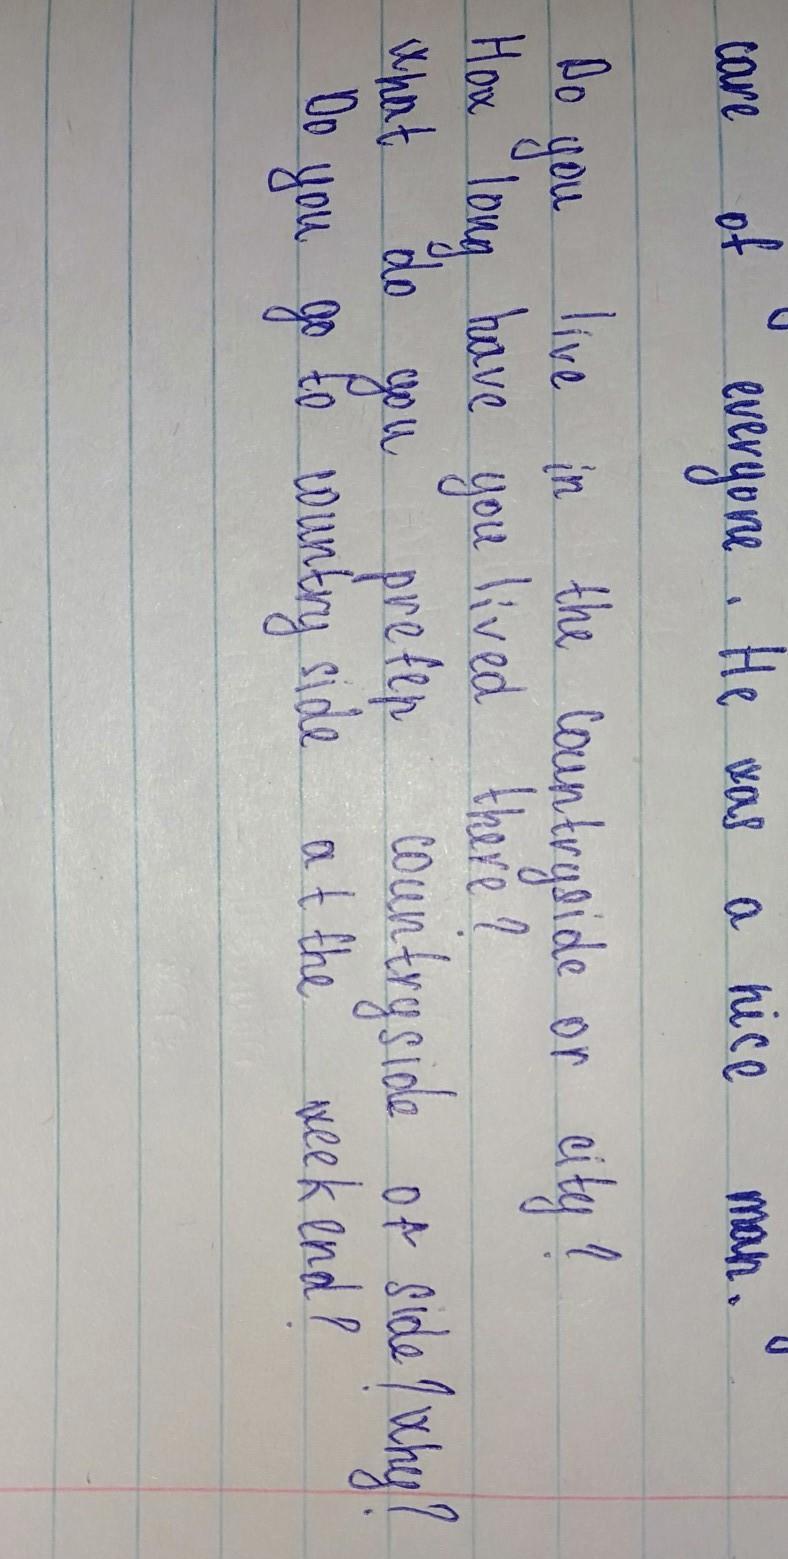 care of everyone. He was a nice man.
Do you live in the countryside or city?
How long have you lived there?
What do you prefer countryside or side? Why?
Do you go to country side at the week end?